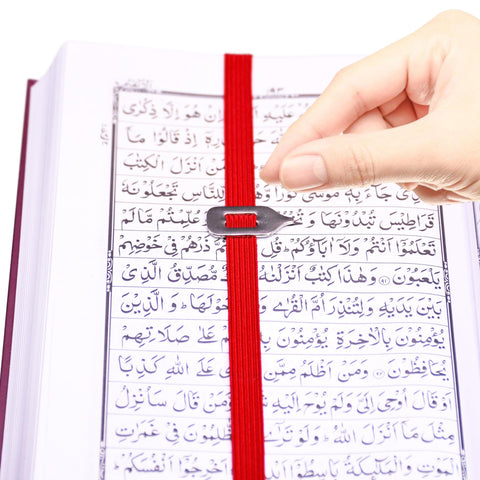 عَلَيْهِ اِنْ هُوَ اِلَّا ذِكْرٰى
اِذْ قَالُوْا مَا
مَنْ اَنْزَلَ الْكِتٰبَ
جَآءَ بِهٖ مُوْسٰى نُوْرًا لِّلنَّاسِ تَجْعَلُوْنَهٗ
قَرَاطِيْسَ تُبْدُوْنَهَا عُلِّمْتُمْ مَّالَمْ
تَعْلَمُوْٓا اَنْتُمْ وَلَآ اٰبَآؤُكُمْ قُلِ ذَرْهُمْ فِيْ خَوْضِهِمْ
يَلْعَبُوْنَ ﴿۹۱﴾ وَهٰذَا كِتٰبٌ اَنْزَلْنٰهُ مُّصَدِّقُ الَّذِيْ
بَيْنَ يَدَيْهِ وَلِتُنْذِرَ اُمَّ الْقُرٰى حَوْلَهَا ؕ وَالَّذِيْنَ
يُؤْمِنُوْنَ بِالْاٰخِرَةِ يُؤْمِنُوْنَ عَلٰى صَلَاتِهِمْ
يُحَافِظُوْنَ ﴿۹۲﴾ وَمَنْ اَظْلَمُ مِمَّنِ عَلَى اللّٰهِ كَذِبًا
اَوْ قَالَ اُوْحِيَ اِلَيَّ وَلَمْ يُوْحَ اِلَيْهِ وَّمَنْ قَالَ سَاُنْزِلُ
مِثْلَ مَآ اَنْزَلَ اللّٰهُ ؕ وَلَوْ تَرٰٓى الظّٰلِمُوْنَ فِيْ غَمَرٰتِ
الْمَوْتِ وَالْمَلٰٓئِكَةُ بَاسِطُوْٓا اَخْرِجُوْٓا اَنْفُسَكُمْ ؕ